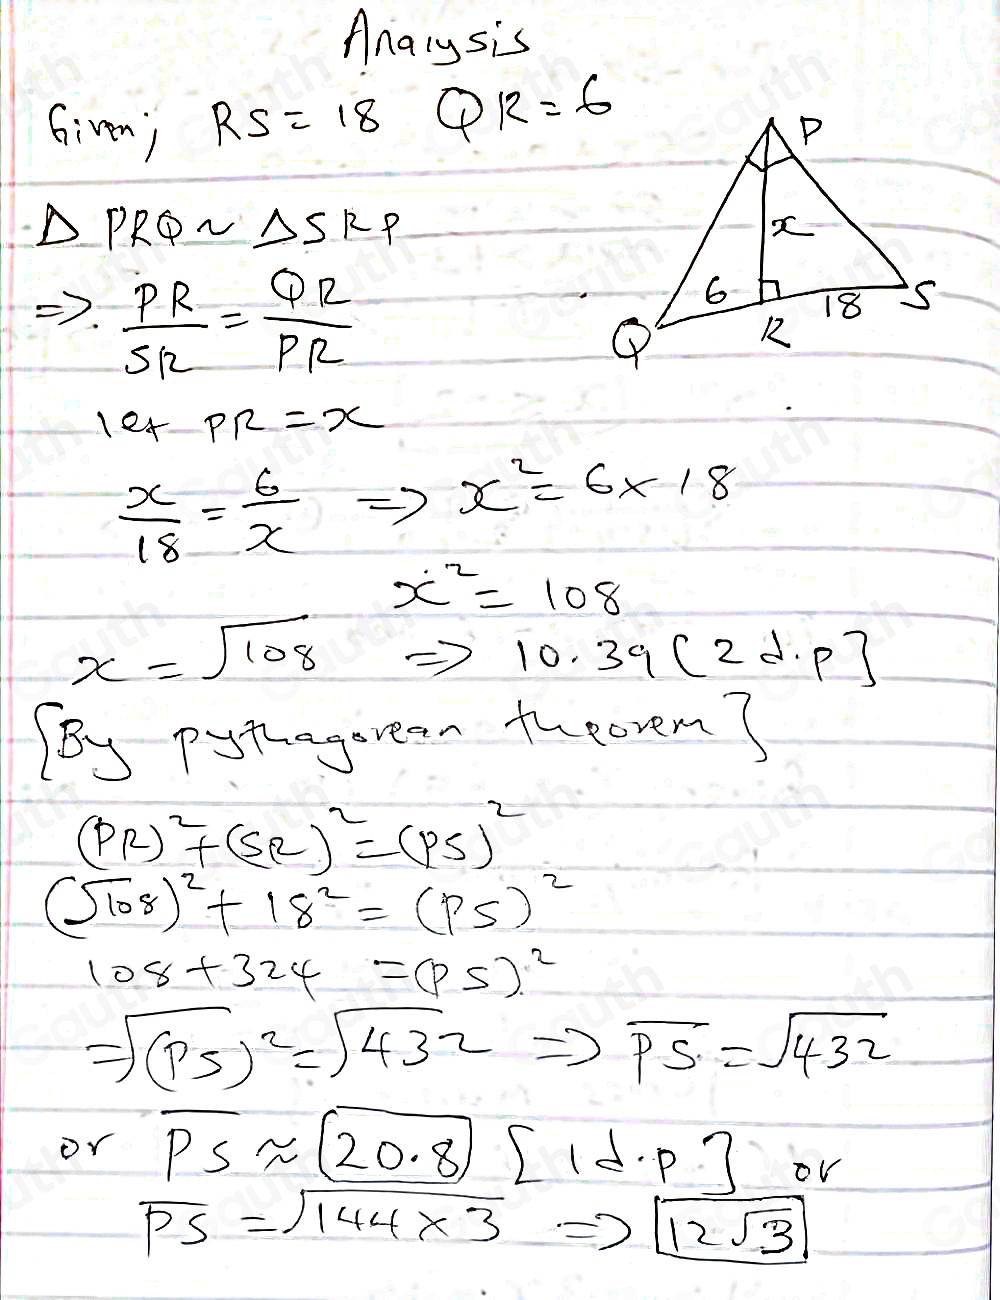 Analysis
Given; RS = 18 QR = 6
P
△ PRQ ~ △SRP
x
=> PR/SR = QR/PR
6
18
S
Q
R
let PR = x
x/18 = 6/x => x² = 6 x 18
x² = 108
x = √108 => 10.39 (2 d.p]
[By pythagorean theorem]
(PR)² + (SR)² = (PS)²
(√108)² + 18² = (PS)²
108 + 324 = (PS)²
=> √(PS)² = √432 => PS = √432
or PS ≈ 20.8 [1 d.p] or
PS = √144 x 3 => 12√3